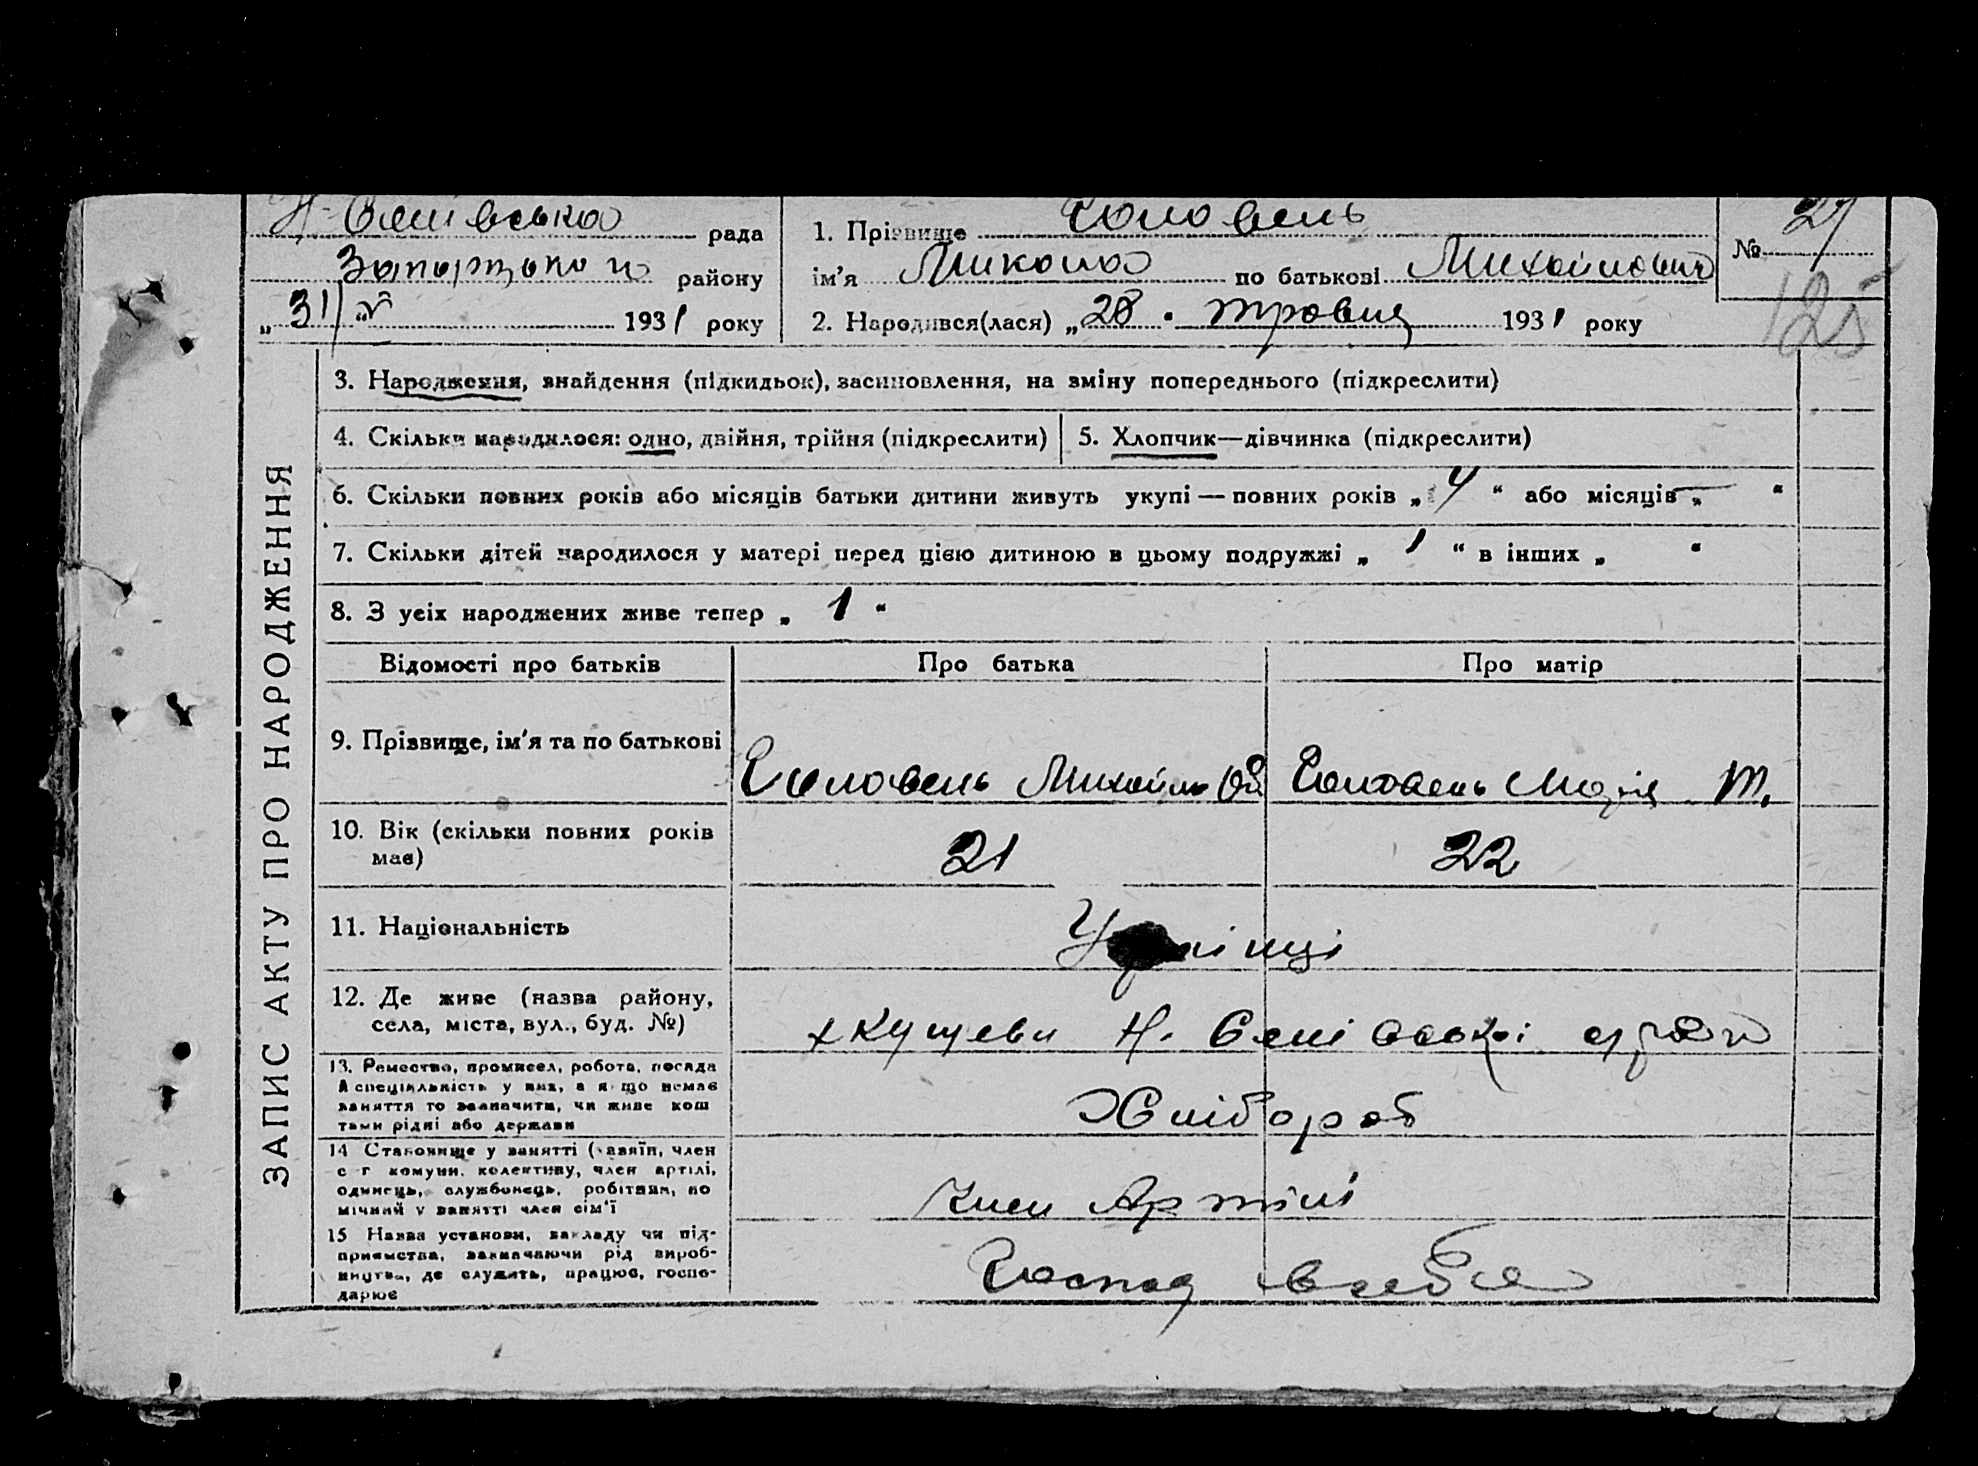 рада
Запорізького району
„31" V 1931 року
1. Прізвище Головень
ім'я Микола по батькові Михайлович
2. Народився(лася) „28. травня 1931 року
№ 27
125
ЗАПИС АКТУ ПРО НАРОДЖЕННЯ
3. Народження, знайдення (підкидьок), засиновлення, на зміну попереднього (підкреслити)
4. Скільки народилося: одно, двійня, трійня (підкреслити)
5. Хлопчик—дівчинка (підкреслити)
6. Скільки повних років або місяців батьки дитини живуть укупі — повних років „ 4 “ або місяців „ — “
7. Скільки дітей народилося у матері перед цією дитиною в цьому подружжі „ 1 “ в інших „ “
8. З усіх народжених живе тепер „ 1 “
Відомості про батьків Про батька Про матір
9. Прізвище, ім'я та по батькові Головень Михайло Головень Марія Т.
10. Вік (скільки повних років 21 22
має)
11. Національність Українці
12. Де живе (назва району,
села, міста, вул., буд. №) Н.
13. Ремество, промисел, робота, посада
й спеціяльність у них, а якщо немає
заняття то зазначити, чи живе кош
тами рідні або держави Хлібороб
14 Становище у занятті (хазяїн, член
с г комуни, колективу, член артілі,
одинець, службовець, робітник, по
мічний у занятті член сім'ї Член Артілі
15 Назва установи, закладу чи під-
приємства, зазначаючи рід вироб-
ництва, де служить, працює, госпо-
дарює Господ в себе